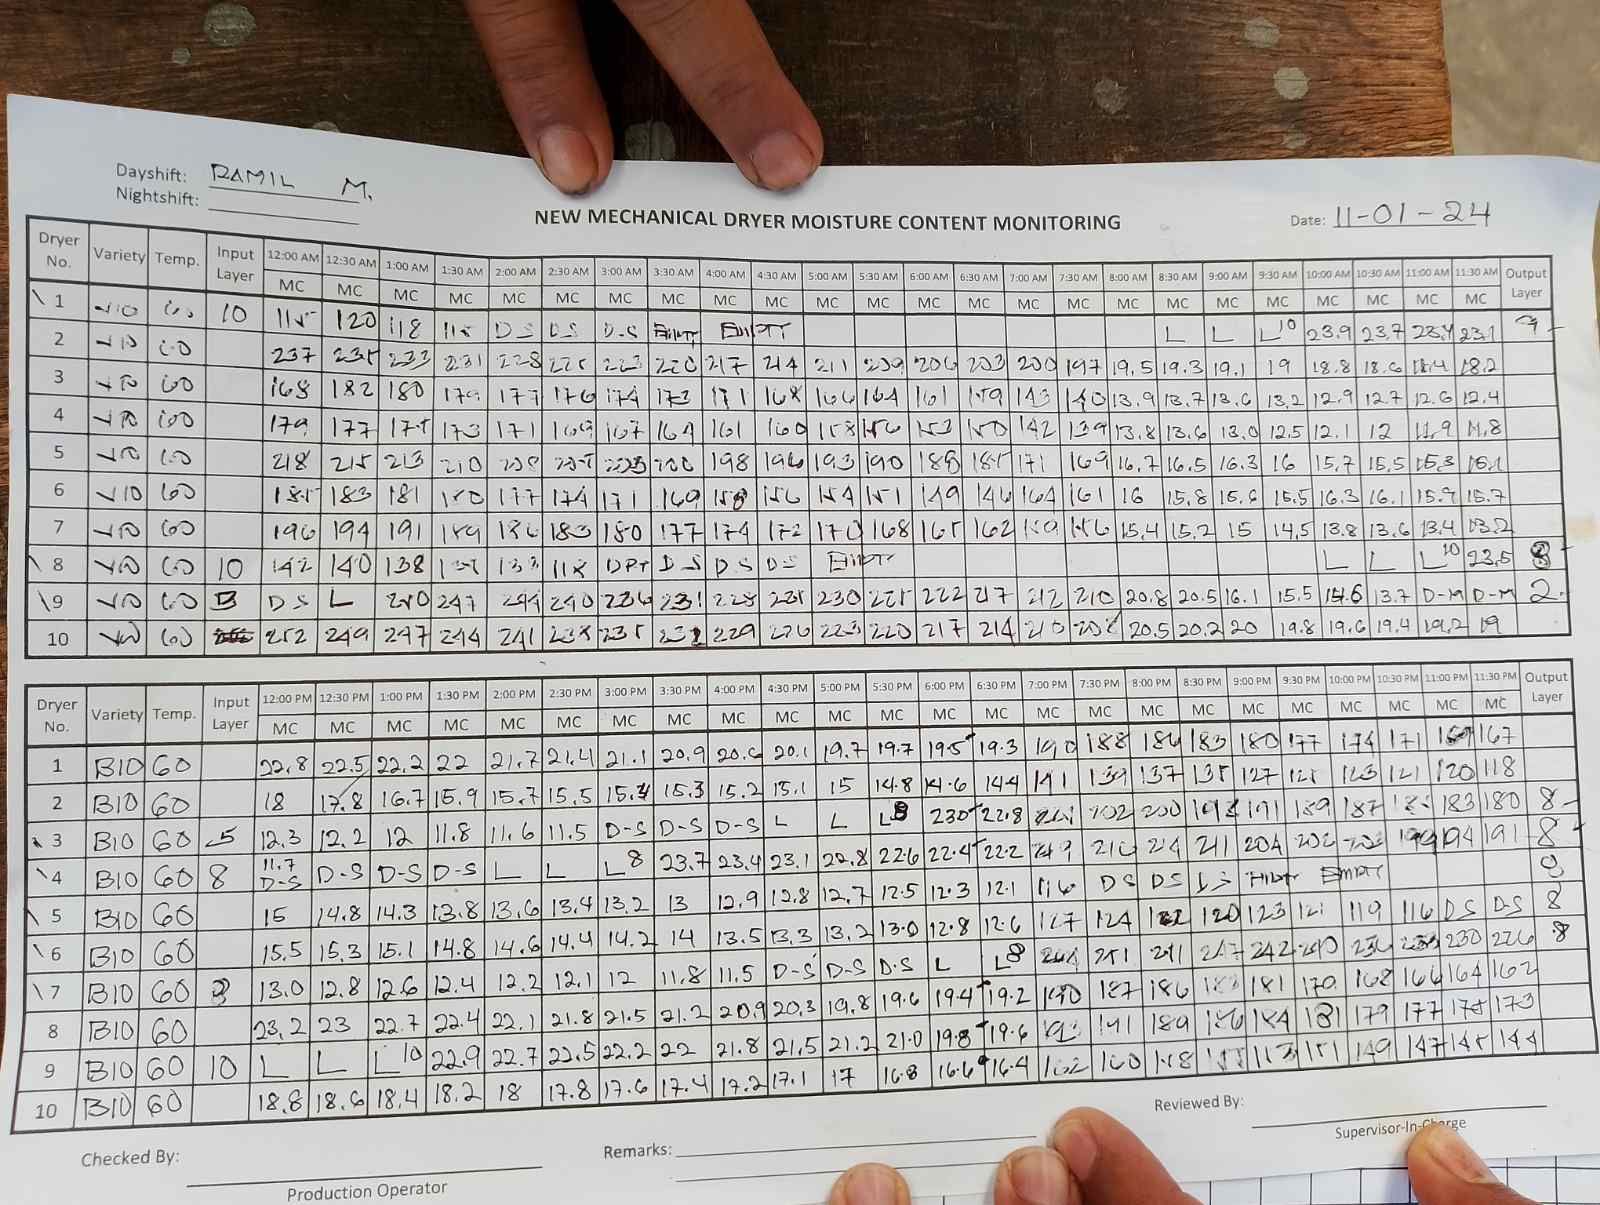 Dayshift: RAMIL M.
Nightshift:
NEW MECHANICAL DRYER MOISTURE CONTENT MONITORING
Date: 11-01-24
Dryer No. Variety Temp. Input Layer 12:00 AM 12:30 AM 1:00 AM 1:30 AM 2:00 AM 2:30 AM 3:00 AM 3:30 AM 4:00 AM 4:30 AM 5:00 AM 5:30 AM 6:00 AM 6:30 AM 7:00 AM 7:30 AM 8:00 AM 8:30 AM 9:00 AM 9:30 AM 10:00 AM 10:30 AM 11:00 AM 11:30 AM Output Layer
MC MC MC MC MC MC MC MC MC MC MC MC MC MC MC MC MC MC MC MC MC MC MC MC
1 V10 60 10 115 120 118 115 D-S D-S D-S EMPTY EMPTY L L L10 23.9 23.7 23.4 23.1 9
2 V10 60 237 235 233 231 228 225 223 220 217 214 211 209 206 203 200 197 19.5 19.3 19.1 19 18.8 18.6 18.4 18.2
3 V10 60 182 180 179 177 176 174 173 171 168 166 164 161 159 143 140 13.9 13.7 13.6 13.2 12.9 12.7 12.6 12.4
4 V10 60 179 177 175 173 171 169 167 164 161 160 158 156 153 150 142 139 13.8 13.6 13.0 12.5 12.1 12 11.9 11.8
5 V10 60 218 215 213 210 208 205 203 200 198 196 193 190 188 185 171 169 16.7 16.5 16.3 16 15.7 15.5 15.3 15.1
6 V10 60 185 183 181 180 177 174 171 169 158 156 154 151 149 146 164 161 16 15.8 15.6 15.5 16.3 16.1 15.9 15.7
7 V10 60 196 194 191 189 186 183 180 177 174 172 170 168 165 162 159 156 15.4 15.2 15 14.5 13.8 13.6 13.4 13.2
8 V10 60 10 142 140 138 133 118 DPT D-S D-S D-S EMPTY L L L10 23.5 8
9 V10 60 DS L 250 247 244 240 236 231 228 230 225 222 217 212 210 20.8 20.5 16.1 15.5 14.6 13.7 D-M D-M 2
10 V10 60 252 249 247 244 241 238 235 232 229 226 223 220 217 214 210 208 20.5 20.2 20 19.8 19.6 19.4 19.2 19
Dryer No. Variety Temp. Input Layer 12:00 PM 12:30 PM 1:00 PM 1:30 PM 2:00 PM 2:30 PM 3:00 PM 3:30 PM 4:00 PM 4:30 PM 5:00 PM 5:30 PM 6:00 PM 6:30 PM 7:00 PM 7:30 PM 8:00 PM 8:30 PM 9:00 PM 9:30 PM 10:00 PM 10:30 PM 11:00 PM 11:30 PM Output Layer
MC MC MC MC MC MC MC MC MC MC MC MC MC MC MC MC MC MC MC MC MC MC MC MC
1 B10 60 22.8 22.5 22.2 22 21.7 21.4 21.1 20.9 20.6 20.1 19.7 19.7 19.5 19.3 190 188 186 183 180 177 174 171 169 167
2 B10 60 18 17.8 16.7 15.9 15.7 15.5 15.4 15.3 15.2 15.1 15 14.8 14.6 14.4 141 139 137 135 127 125 123 121 120 118
3 B10 60 5 12.3 12.2 12 11.8 11.6 11.5 D-S D-S D-S L L L8 230 22.8 202 200 193 191 189 187 185 183 180 8
4 B10 60 8 11.7 D-S D-S D-S D-S L L L8 23.7 23.4 23.1 22.8 22.6 22.4 22.2 219 216 214 211 204 202 199 194 191 8
5 B10 60 15 14.8 14.3 13.8 13.6 13.4 13.2 13 12.9 12.8 12.7 12.5 12.3 12.1 116 DS DS DS EMPTY EMPTY 8
6 B10 60 15.5 15.3 15.1 14.8 14.6 14.4 14.2 14 13.5 13.3 13.2 13.0 12.8 12.6 127 124 122 120 123 121 119 116 DS D-S 8
7 B10 60 13.0 12.8 12.6 12.4 12.2 12.1 12 11.8 11.5 D-S D-S D.S L L8 251 247 242 240 236 233 230 226 8
8 B10 60 23.2 23 22.7 22.4 22.1 21.8 21.5 21.2 20.9 20.3 19.8 19.6 19.4 19.2 190 187 186 183 181 179 168 166 164 162
9 B10 60 10 L L L10 22.9 22.7 22.5 22.2 22 21.8 21.5 21.2 21.0 19.8 19.6 193 191 189 186 184 181 179 177 175 173
10 B10 60 18.8 18.6 18.4 18.2 18 17.8 17.6 17.4 17.2 17.1 17 16.8 16.6 16.4 162 160 158 155 153 151 149 147 145 144
Checked By:
Production Operator
Remarks:
Reviewed By:
Supervisor-In-Charge